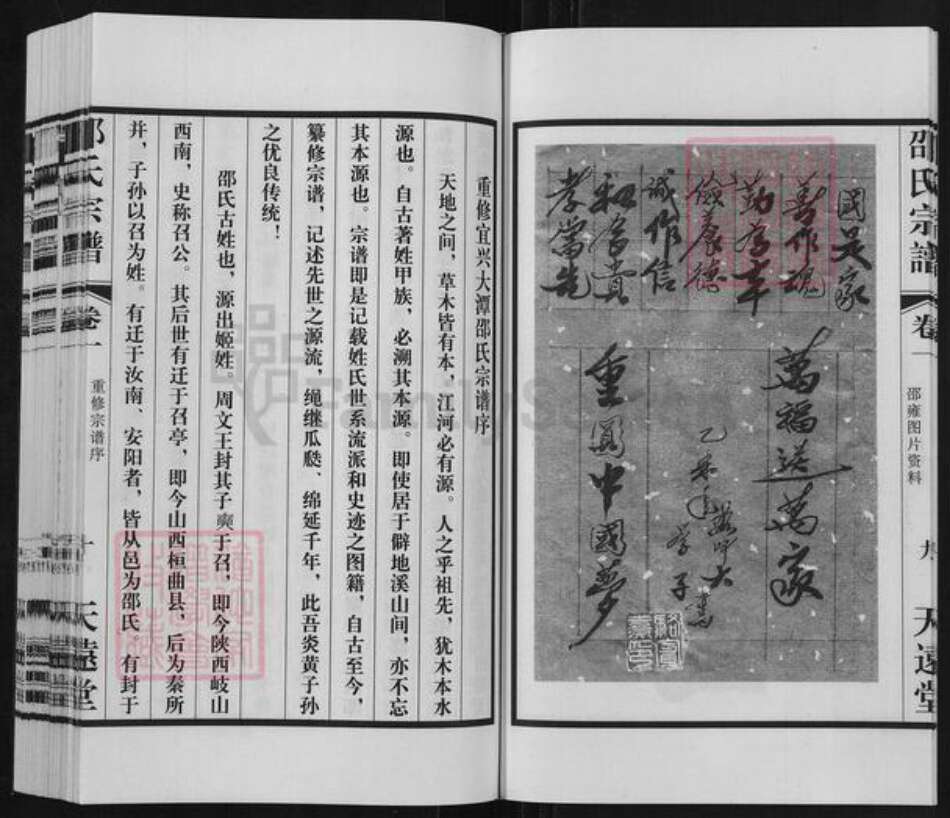 邵氏宗譜
卷一
邵雍图片资料
九
天远堂
國是家
善作魂
勤为本
儉養德
誠作信
和為貴
孝當先
萬福送萬家
乙未年
重圓中國夢
重修宜兴大潭邵氏宗谱序
天地之间，草木皆有本，江河必有源。人之乎祖先，犹木本水
源也。自古著姓甲族，必溯其本源。即使居于僻地溪山间，亦不忘
其本源也。宗谱即是记载姓氏世系流派和史迹之图籍，自古至今，
纂修宗谱，记述先世之源流，绳继瓜瓞、绵延千年，此吾炎黄子孙
之优良传统！
邵氏古姓也，源出姬姓。周文王封其子奭于召，即今陕西岐山
西南，史称召公。其后世有迁于召亭，即今山西桓曲县，后为秦所
并，子孙以召为姓。有迁于汝南、安阳者，皆从邑为邵氏 有封于
邵氏宗譜
卷一
重修宗谱序
十
天遠堂